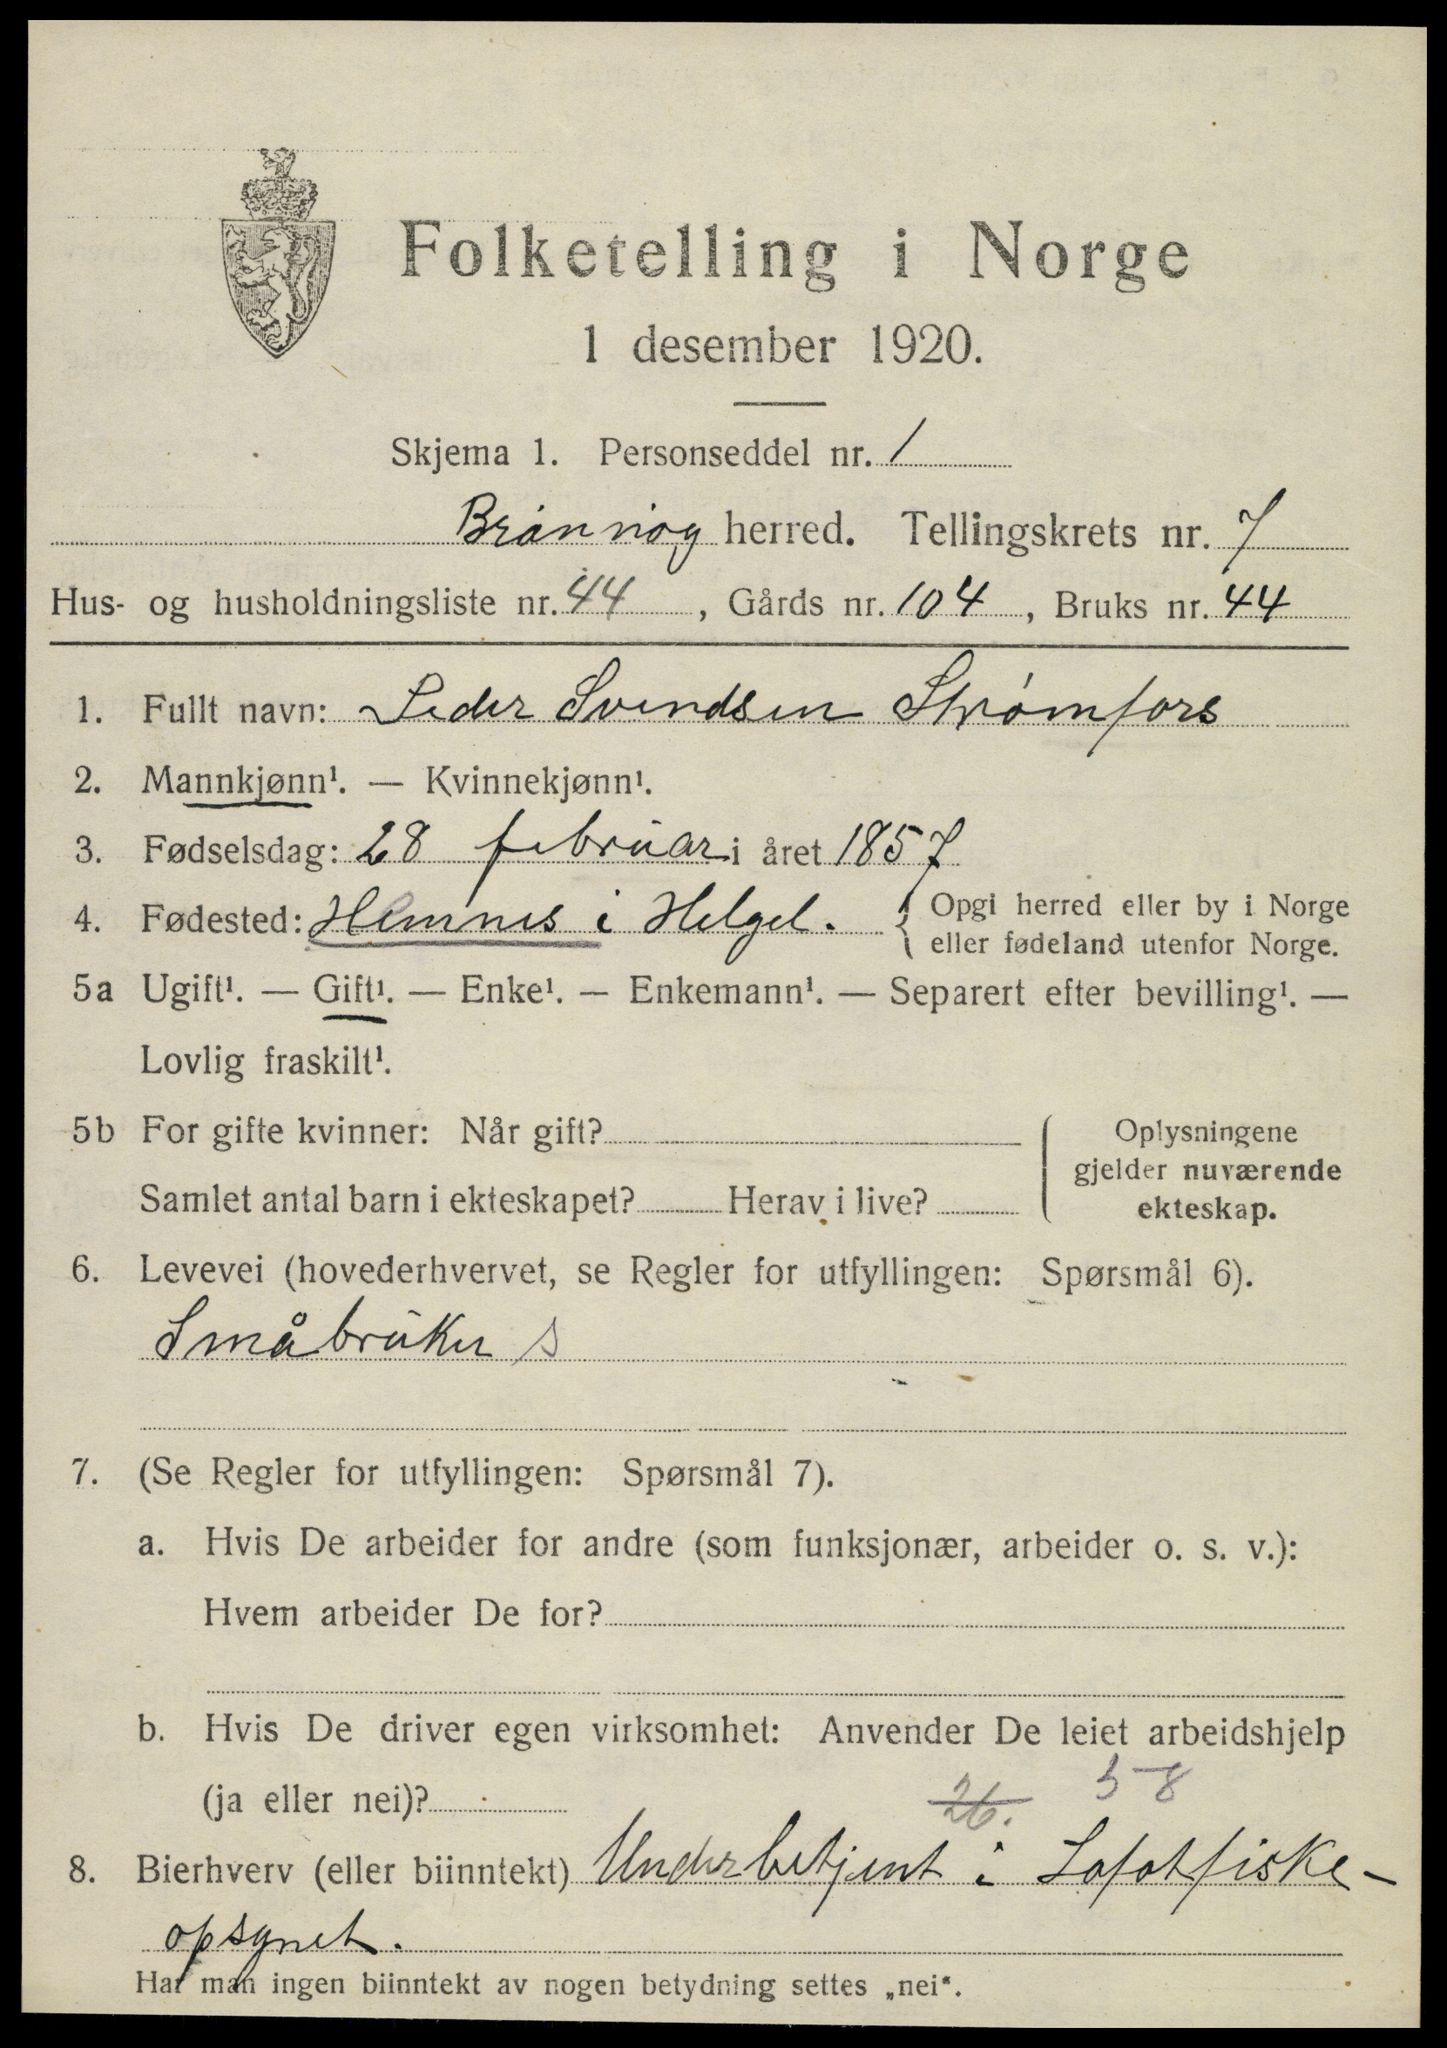 Folketelling i Norge
1 desember 1920.
Skjema 1. Personseddel nr. 1
Brønnøy herred. Tellingskrets nr. 7
Hus- og husholdningsliste nr. 44, Gårds nr. 104, Bruks nr. 44
1. Fullt navn: Peder Svendsen Strømfors
2. Mannkjønn¹. — Kvinnekjønn¹.
3. Fødselsdag: 28 februar i året 1857
4. Fødested: Hemnes i Helgel. { Opgi herred eller by i Norge
eller fødeland utenfor Norge.
5a Ugift¹. — Gift¹. — Enke¹. — Enkemann¹. — Separert efter bevilling¹. —
Lovlig fraskilt¹.
5b For gifte kvinner: Når gift?
Samlet antal barn i ekteskapet? Herav i live?
Oplysningene
gjelder nuværende
ekteskap.
6. Levevei (hovederhvervet, se Regler for utfyllingen: Spørsmål 6).
Småbruker s
7. (Se Regler for utfyllingen: Spørsmål 7).
a. Hvis De arbeider for andre (som funksjonær, arbeider o. s. v.):
Hvem arbeider De for?
b. Hvis De driver egen virksomhet: Anvender De leiet arbeidshjelp
(ja eller nei)? 26. 58
8. Bierhverv (eller biinntekt) Underbetjent i Lofotfiske-
opsynet.
Har man ingen biinntekt av nogen betydning settes „nei“.